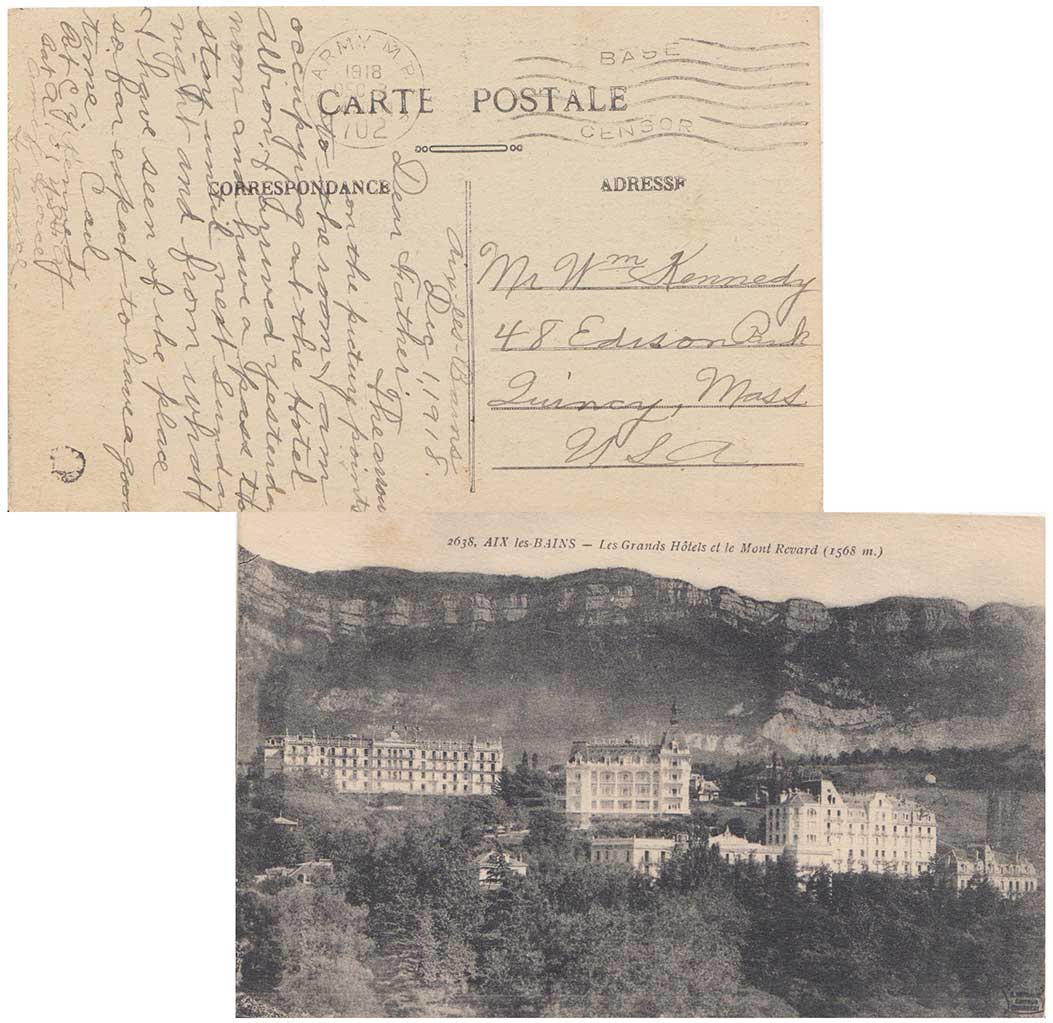 ARMY M.P.
1918
702
BASE
CENSOR
CARTE POSTALE
CORRESPONDANCE
ADRESSE
Mr Wm Kennedy
48 Edison Park
Quincy, Mass.
U S A
Aix-les-Bains
Dec 1, 1918.
Dear Father: The arrow
on the picture points
to the room I am
occupying at the Hotel
Albion. I arrived yesterday
noon and have a pass to
stay until next Sunday
night and from what
I have seen of the place
so far expect to have a good
time. Carl
Kennedy
France
2638, AIX les-BAINS — Les Grands Hôtels et le Mont Revard (1568 m.)